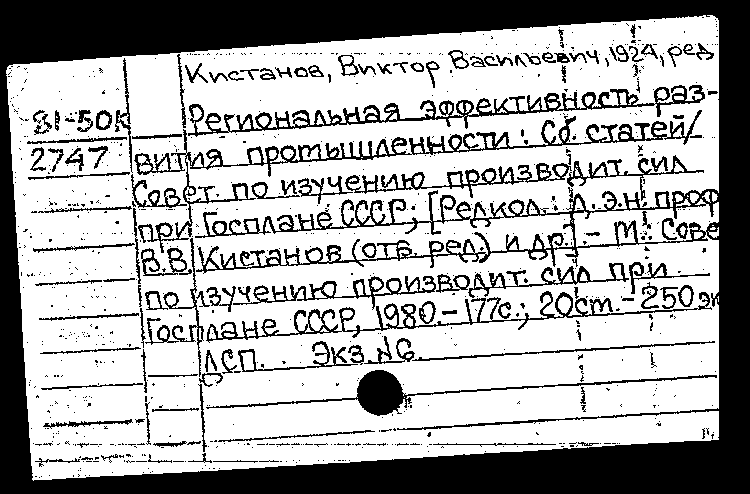 Кистанов, Виктор Васильевич, 1924, ред
81-50К Региональная эффективность раз-
2747 вития промышленности: Сб. статей/
Совет. по изучению производит. сил
при Госплане СССР; [Редкол.: д.э.н. проф
В.В. Кистанов (отв. ред.) и др.]. - М.: Сове
по изучению производит. сил при
Госплане СССР, 1980. - 177с.; 20см. - 250 эк
ДСП. Экз. №